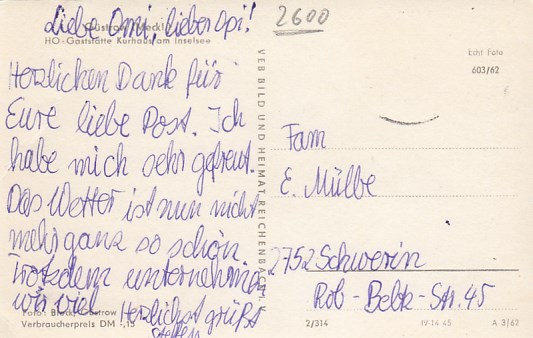 Liebe Omi, lieber Opi!
2600
Güstrow Meckl
HO-Gaststätte Kurhaus am Inselsee
Echt Foto
603/62
Herzlichen Dank für
Eure liebe Post. Ich
habe mich sehr gefreut.
Das Wetter ist nun nicht
mehr ganz so schön.
Trotzdem unternehmen
wir viel
Herzlichst grüßt
Steffen
VEB BILD UND HEIMAT REICHENBACH i. V.
Fam
E. Mülbe
2752 Schwerin
Rob-Beltz-Str. 45
Güstrow
Verbraucherpreis DM -,15
2/314
IV-14 45
A 3/62